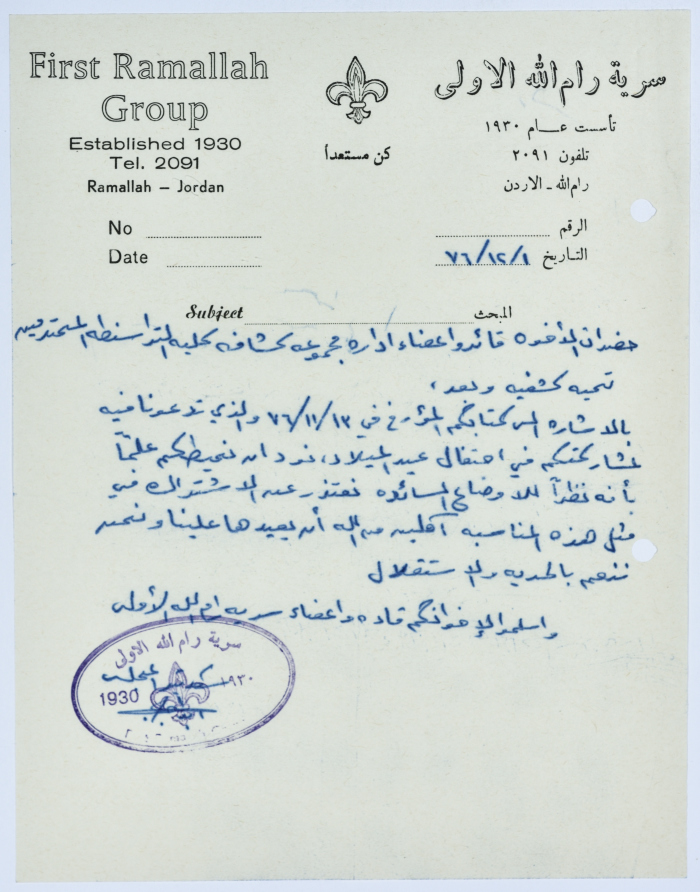 First Ramallah
Group
Established 1930
Tel. 2091
Ramallah – Jordan
كن مستعداً
سرية رام الله الاولى
تأسست عام ١٩٣٠
تلفون ٢٠٩١
رام الله - الاردن
No
Date
الرقم
التاريخ ٧٦/١٢/١
Subject المبحث
حضرات الاخوه قائد واعضاء اداره مجموعه كشافه كليه التراسنطه المحترمين
تحيه كشفيه وبعد،
بالاشاره الى كتابكم المؤرخ في ٧٦/١١/١٣ والذي تدعونا فيه
لمشاركتكم في احتفال عيد الميلاد، نود ان نحيطكم علماً
بأنه نظراً للاوضاع السائده نعتذر عن الاشتراك في
مثل هذه المناسبه آملين من الله أن يعيدها علينا ونحن
ننعم بالحريه والاستقلال
واسلموا لإخوانكم قاده واعضاء سريه رام الله الأولى
سرية رام الله الاولى
1930
١٩٣٠